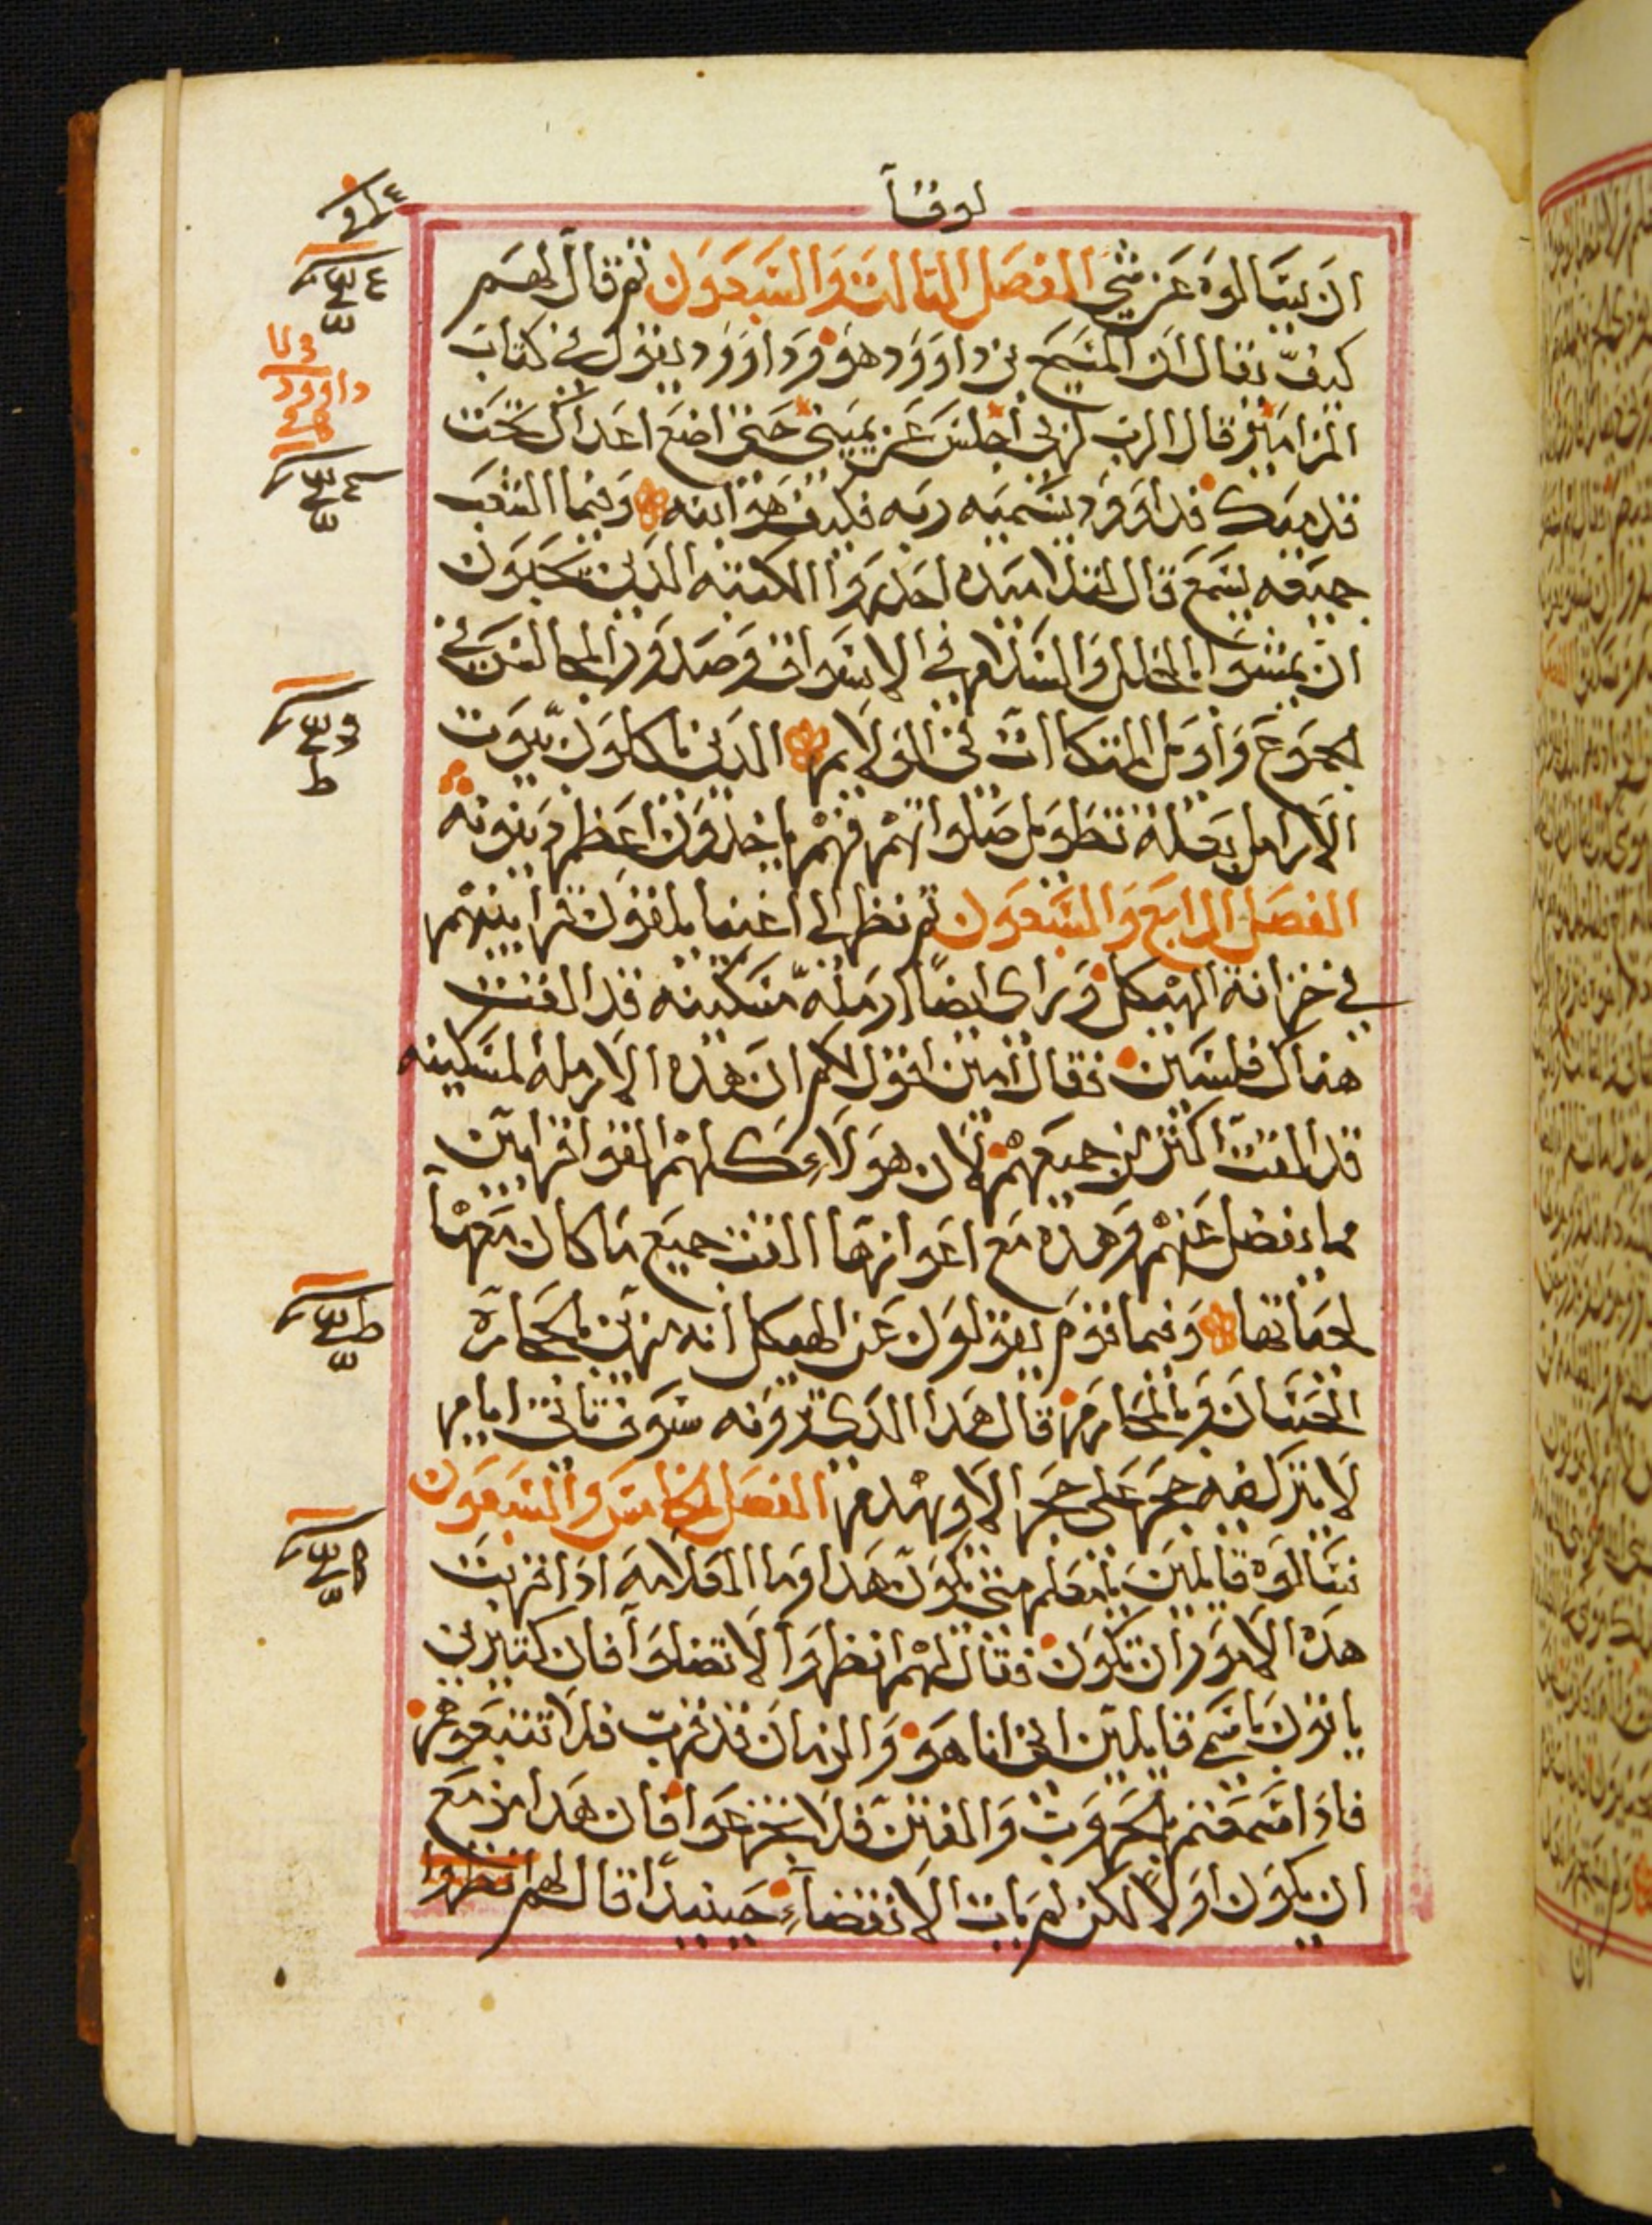 لوقا
ان يسالوه عن شي الفصل الثالث والسبعون ثم قال لهم
كيف يقال ان المسيح بن داوود هو وداوود يقول في كتاب
المزامير قال الرب لربي اجلس عن يميني حتى اضع اعداك تحت
قدميك فداوود يسميه ربه فكيف هو ابنه وفيما الشعب
جميعه يسمع قال لتلاميده احدروا الكتبه الدين يحبون
ان يمشوا بالحلل والسلام في الاسواق وصدور المجالس في
الجموع واول المتكاات في الولايم الدين ياكلون بيوت
الارامل بعلة تطويل صلواتهم فهم ياخدون اعظم دينونه
الفصل الرابع والسبعون ثم نظر الى اغنيا يلقون قرابينهم
في خزانة الهيكل وراى ايضاً ارملة مسكينه قد القت
هناك فلسين فقال امين اقول لكم ان هده الارملة المسكينه
قد القت اكثر من جميعهم لان هولاء كلهم القوا قرابين
مما يفضل عنهم وهده مع اعوازها القت جميع ما كان معها
لحياتها وفيما قوم يقولون عن الهيكل انه مزين بالحجارة
الحسان وبالمحارم قال هدا الدى ترونه سوف تاتي ايام
لا يترك فيه حجر على حجر الا ويهدم الفصل الخامس والسبعون
فسالوه قايلين يامعلم متى يكون هدا وما العلامه ادا قربت
هده الامور ان تكون فقال لهم انظروا لا تضلوا فان كتيرين
ياتون باسمي قايلين اني انا هو والزمان قد قرب فلا تتبعوهم
فادا سمعتم بالحروب والفتن فلا تجزعوا فان هدا مزمع
ان يكون اولاً لكن لم يات الانقضاء حينيداً قال لهم انظروا
داوود